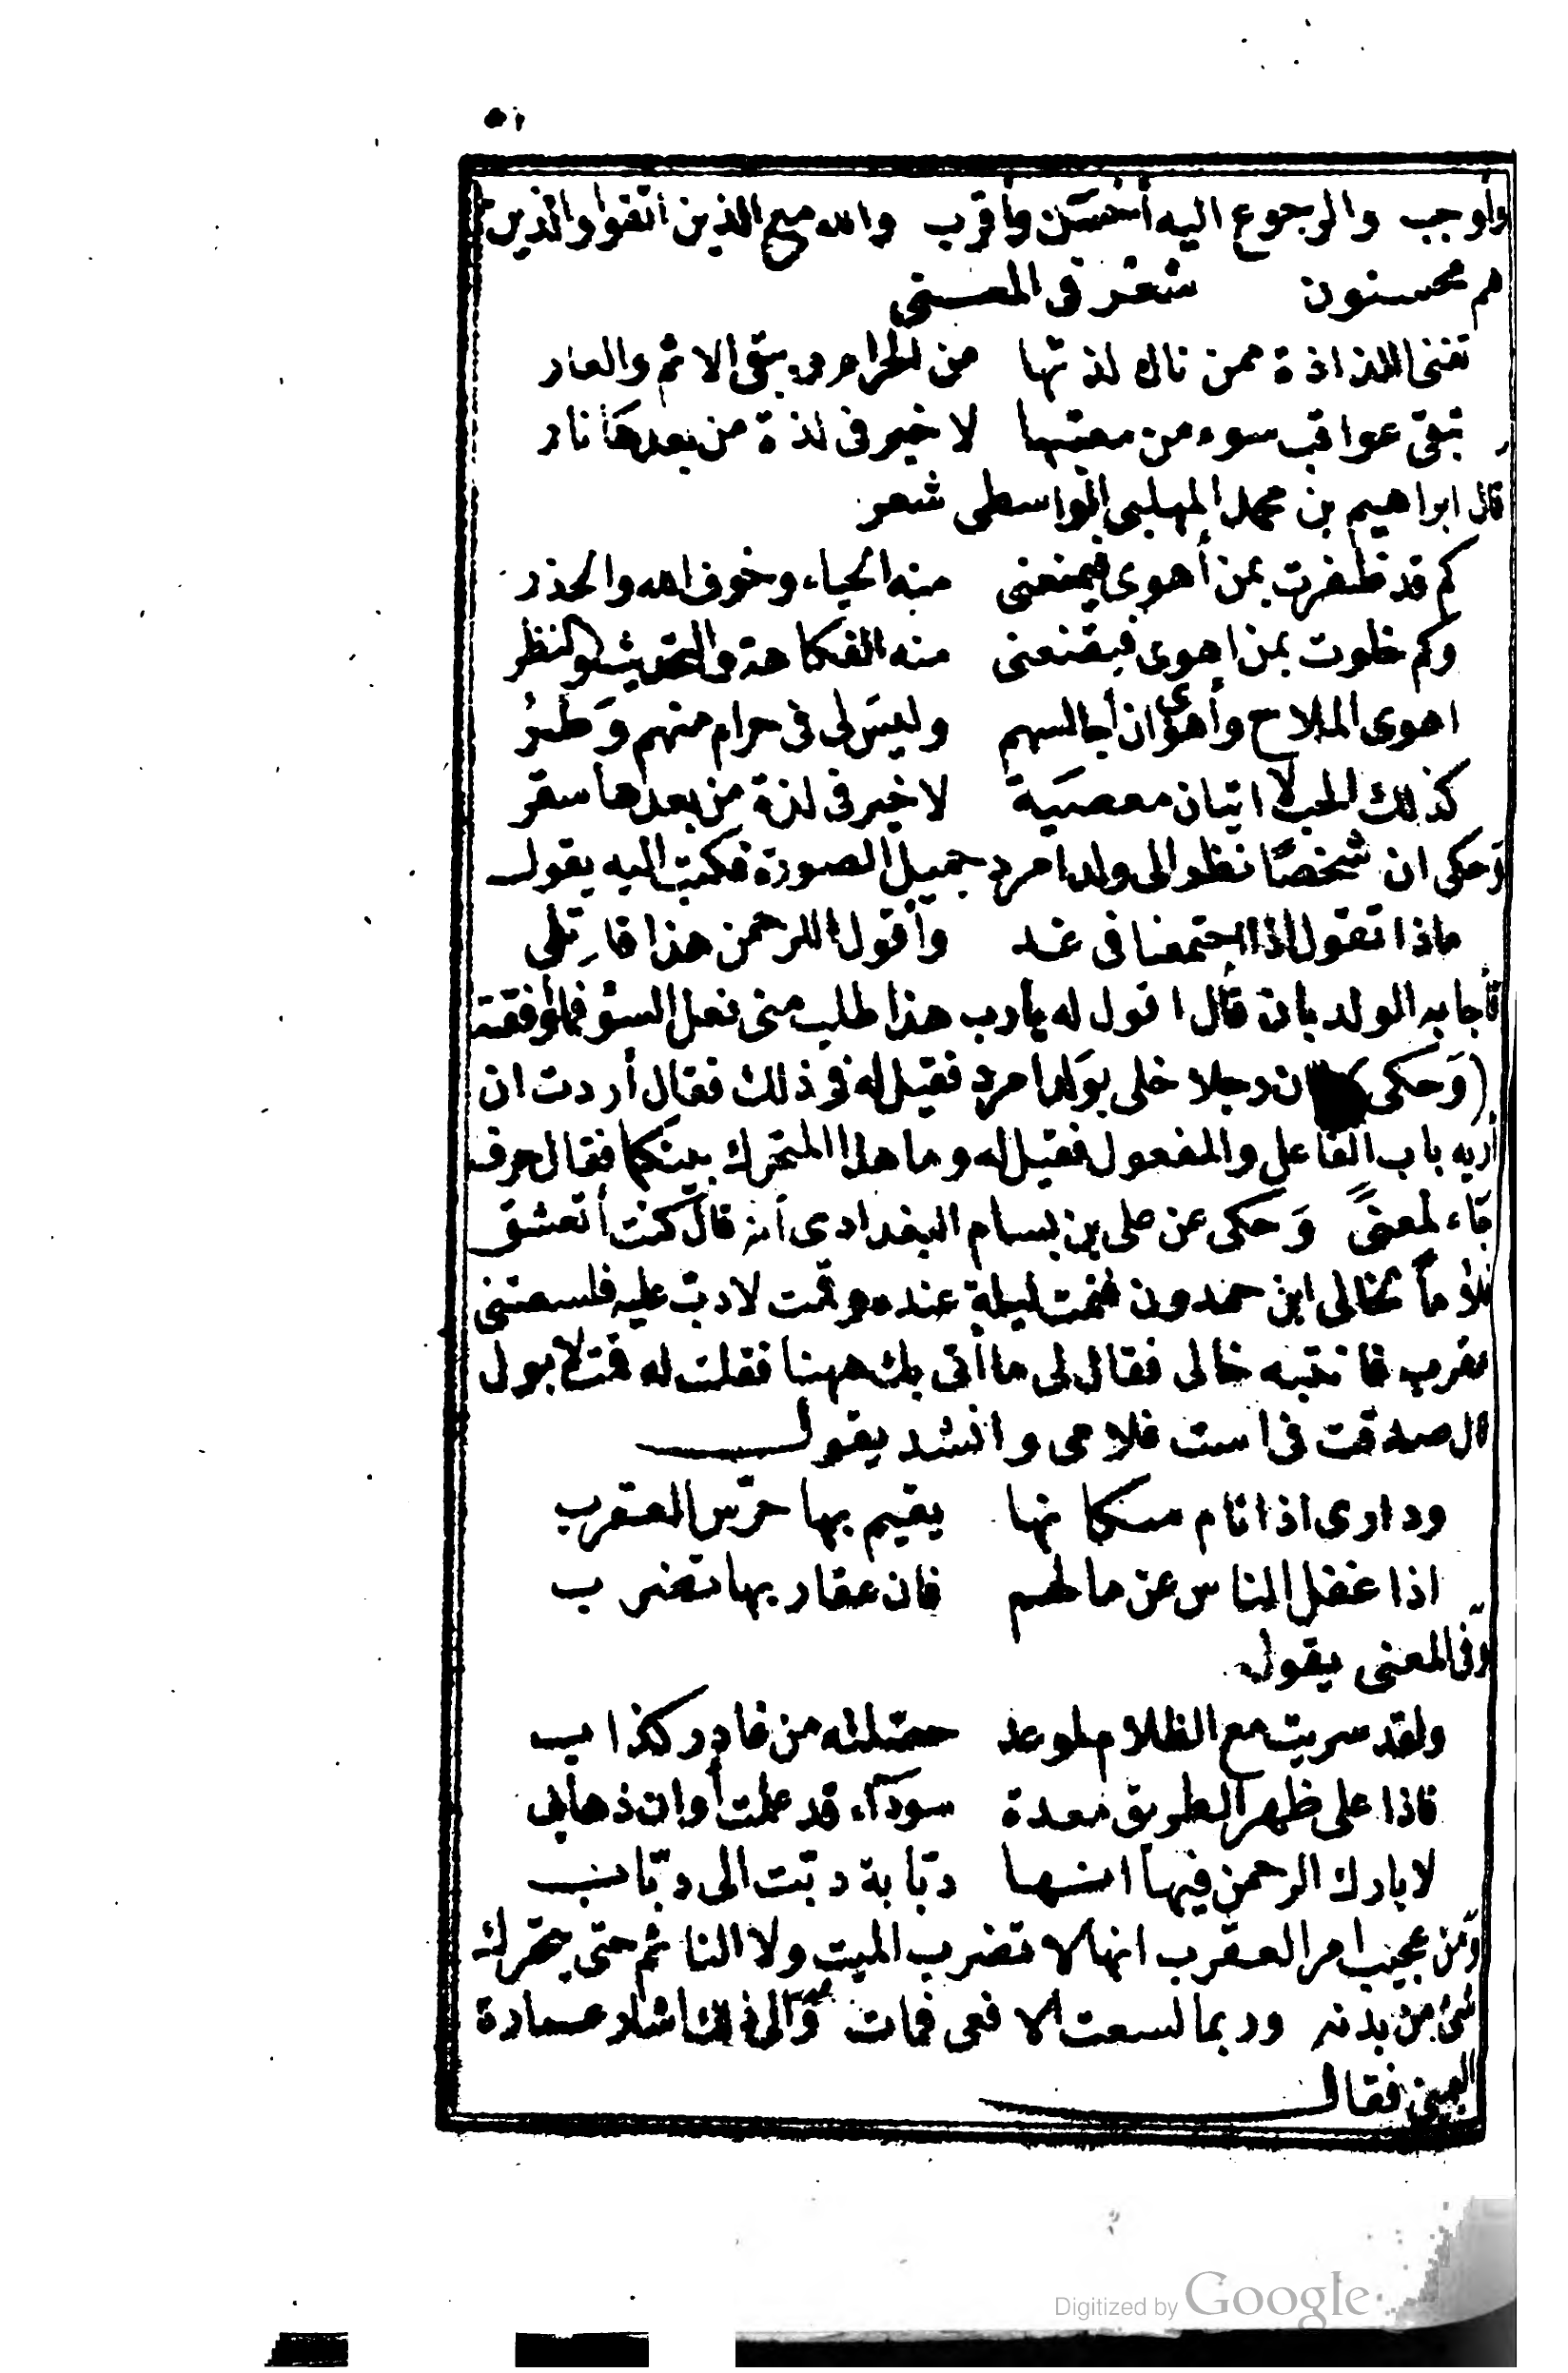 ٥١
وأوجب والرجوع اليه أحسن وأقرب والله مع الذين اتقوا والذين
هم محسنون شعر فى المعنى
تفنى اللذاذة ممن نال لذتها من الحرام ويبقى الاثم والعار
تبقى عواقب سوء من مغبتها لا خير فى لذة من بعدها نار
قال ابراهيم بن محمد المهلبى الواسطى شعر
كم قد ظفرت بمن أهوى فيمنعنى منه الحياء وخوف الله والحذر
وكم خلوت بمن اهوى فيقنعنى منه الفكاهة والتحديث والنظر
اهوى الملاح وأهوى ان أجالسهم وليس لى فى حرام منهم وطر
كذلك الحب لا اتيان معصية لا خير فى لذة من بعدها سقر
وحكى ان شخصًا نظر الى ولد امرد جميل الصورة فكتب اليه يقول
ماذا تقول اذا اجتمعنا فى غد وأقول للرحمن هذا قاتلى
فأجابه الولد بان قال اقول له يارب هذا طلب منى فعل السؤ فما وافقته
(وحكى) ان رجلا خلى بولد امرد فقيل له فى ذلك فقال أردت ان
أريه باب الفاعل والمفعول فقيل له وما هذا المتحرك بينكما فقال حرف
جاء لمعنى وحكى عن على بن بسام البغدادى أنه قال كنت أتعشق
غلاماً لخالى ابن حمدون فنمت ليلة عنده وقمت لادب عليه فلسعتنى
عقرب فانتبه خالى فقال لى ما أتى بك ههنا فقلت له قمت لابول
قال صدقت فى است غلامى وانشد يقول
ودارى اذا نام سكانها يقيم بها حرس العقرب
اذا غفل الناس عن مالهم فان عقاربها تضرب
وفى المعنى يقول
ولقد سريت مع الظلام لموعد حصلته من غادر كذاب
فاذا على ظهر الطريق معدة سوداء قد علمت أوان ذهابى
لا بارك الرحمن فيها انها دبابة دبت الى دباب
ومن عجيب امر العقرب انها لا تضرب الميت ولا النائم حتى يتحرك
شئ من بدنه وربما لسعت الافعى فماتت والى ذلك اشار عمارة
اليمنى فقال
Digitized by Google